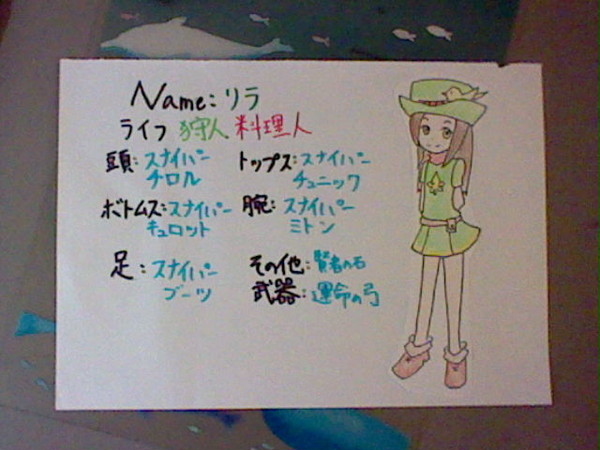 Name: リラ
ライフ 狩人 料理人
頭: スナイパー
チロル
トップス: スナイパー
チュニック
ボトムス: スナイパー
キュロット
腕: スナイパー
ミトン
足: スナイパー
ブーツ
その他: 賢者の石
武器: 運命の弓